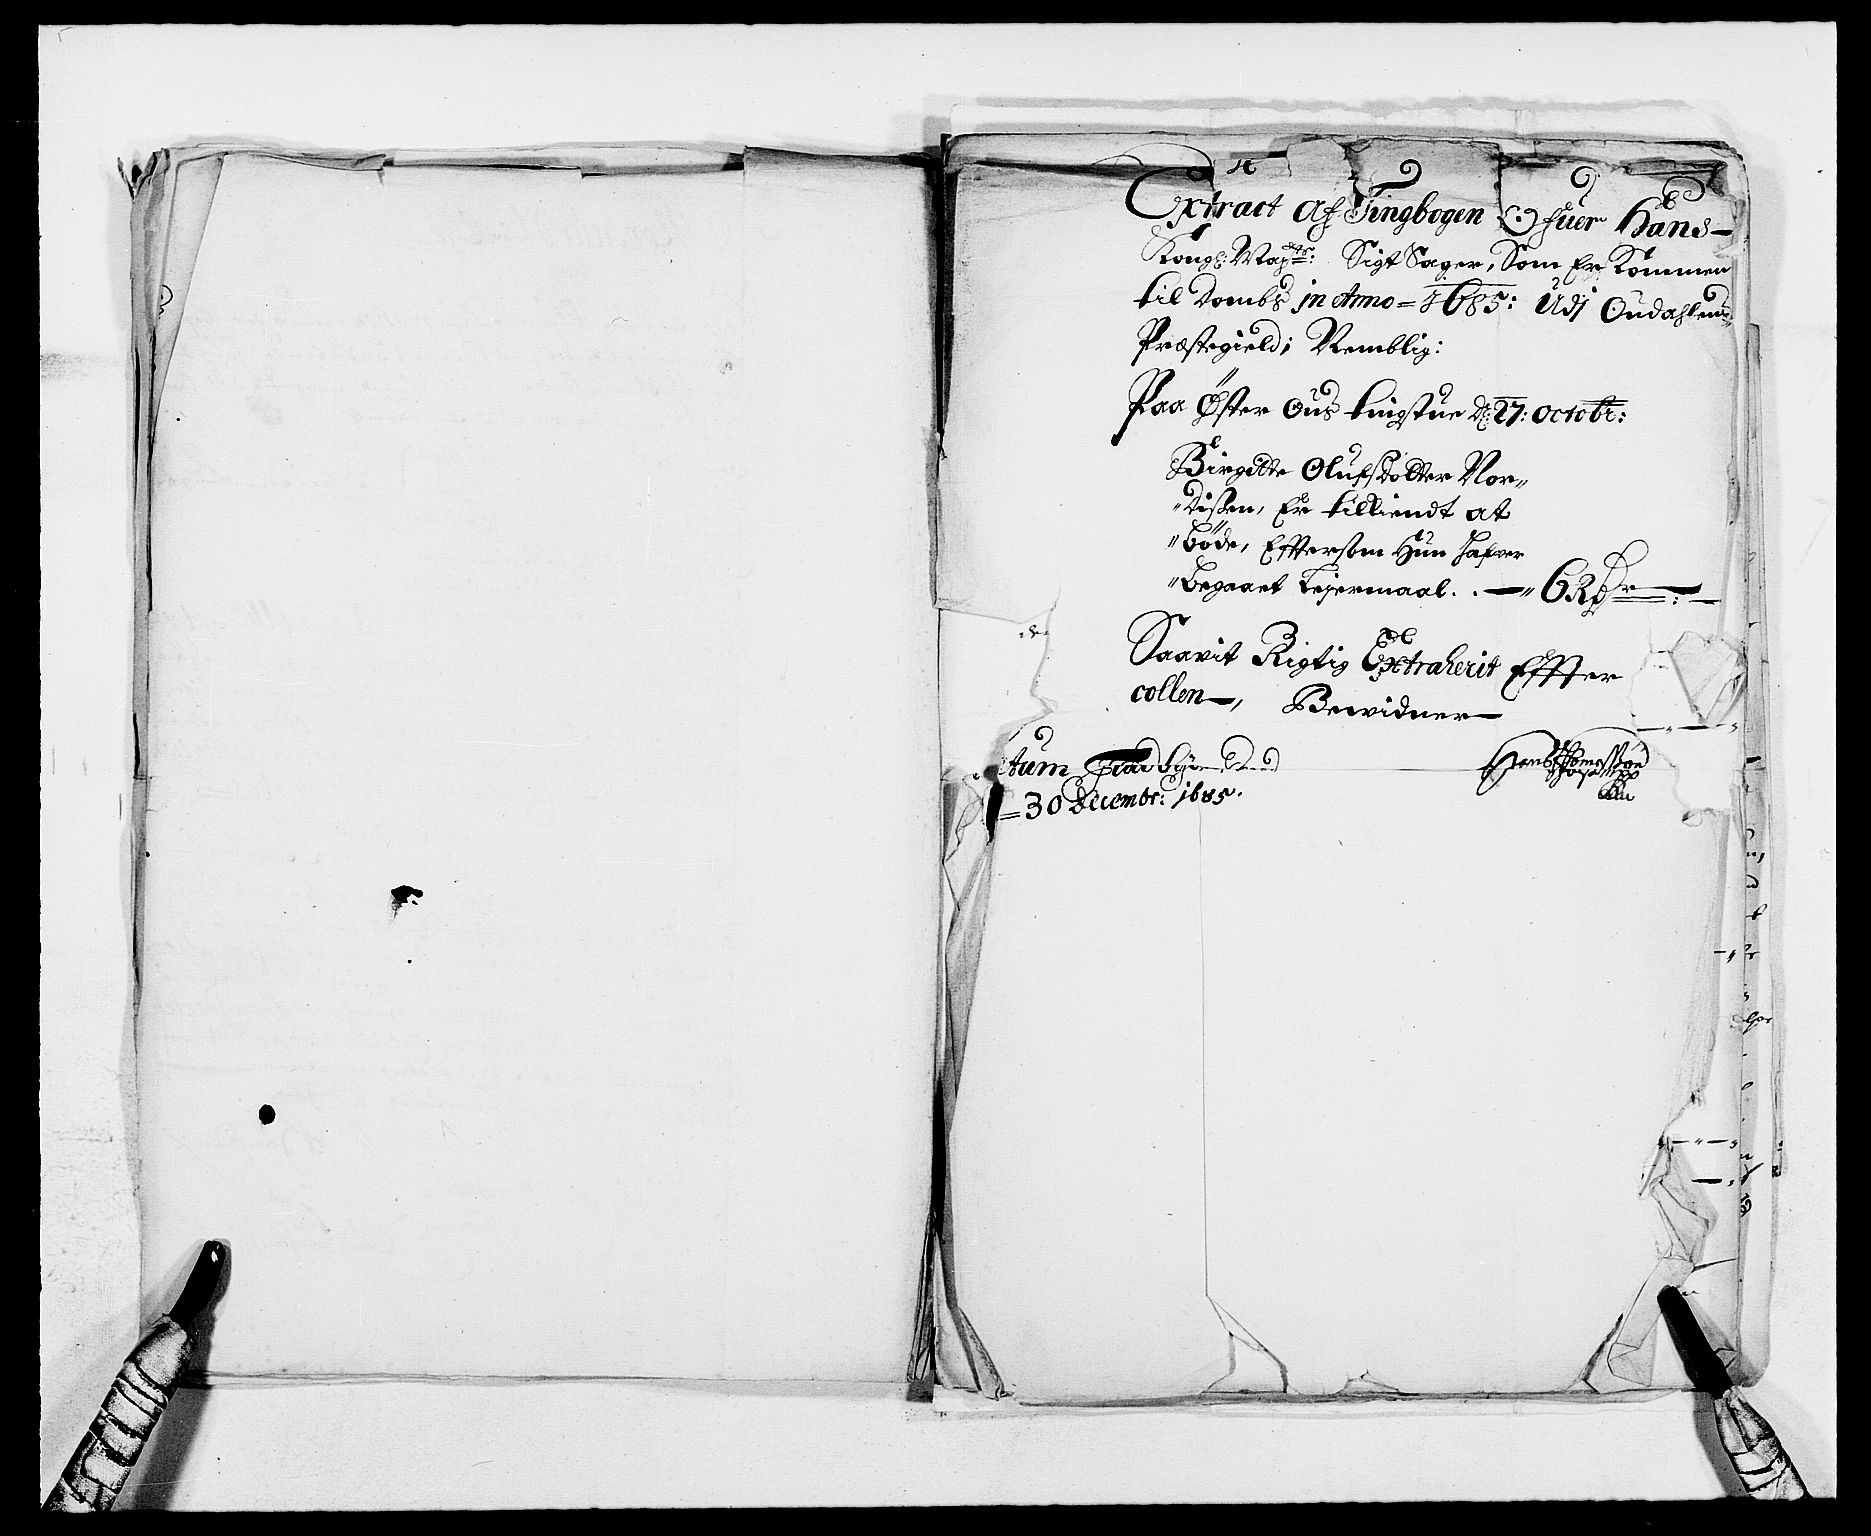 Extract af Tingbogen Ofuer Hans
Kongl: Mayts: Sigt Sager, Som Er Kommen
til Dombs in Anno = 1685: Udj Oudahlens
Præstegield; Nemblig:
Paa Öster Ous tingstue d: 27: Octobr:
Birgitte Olufsdotter Nor„
„dissen, Er tilkiendt at
„böde, Effter som Hun hafver
„begaaet Leyermaal. . — „ 6 Rdr — : —
Saavit Rigtig Extraherit Effter
collen —, Bewidner —
tum
= 30 Decembr: 1685.